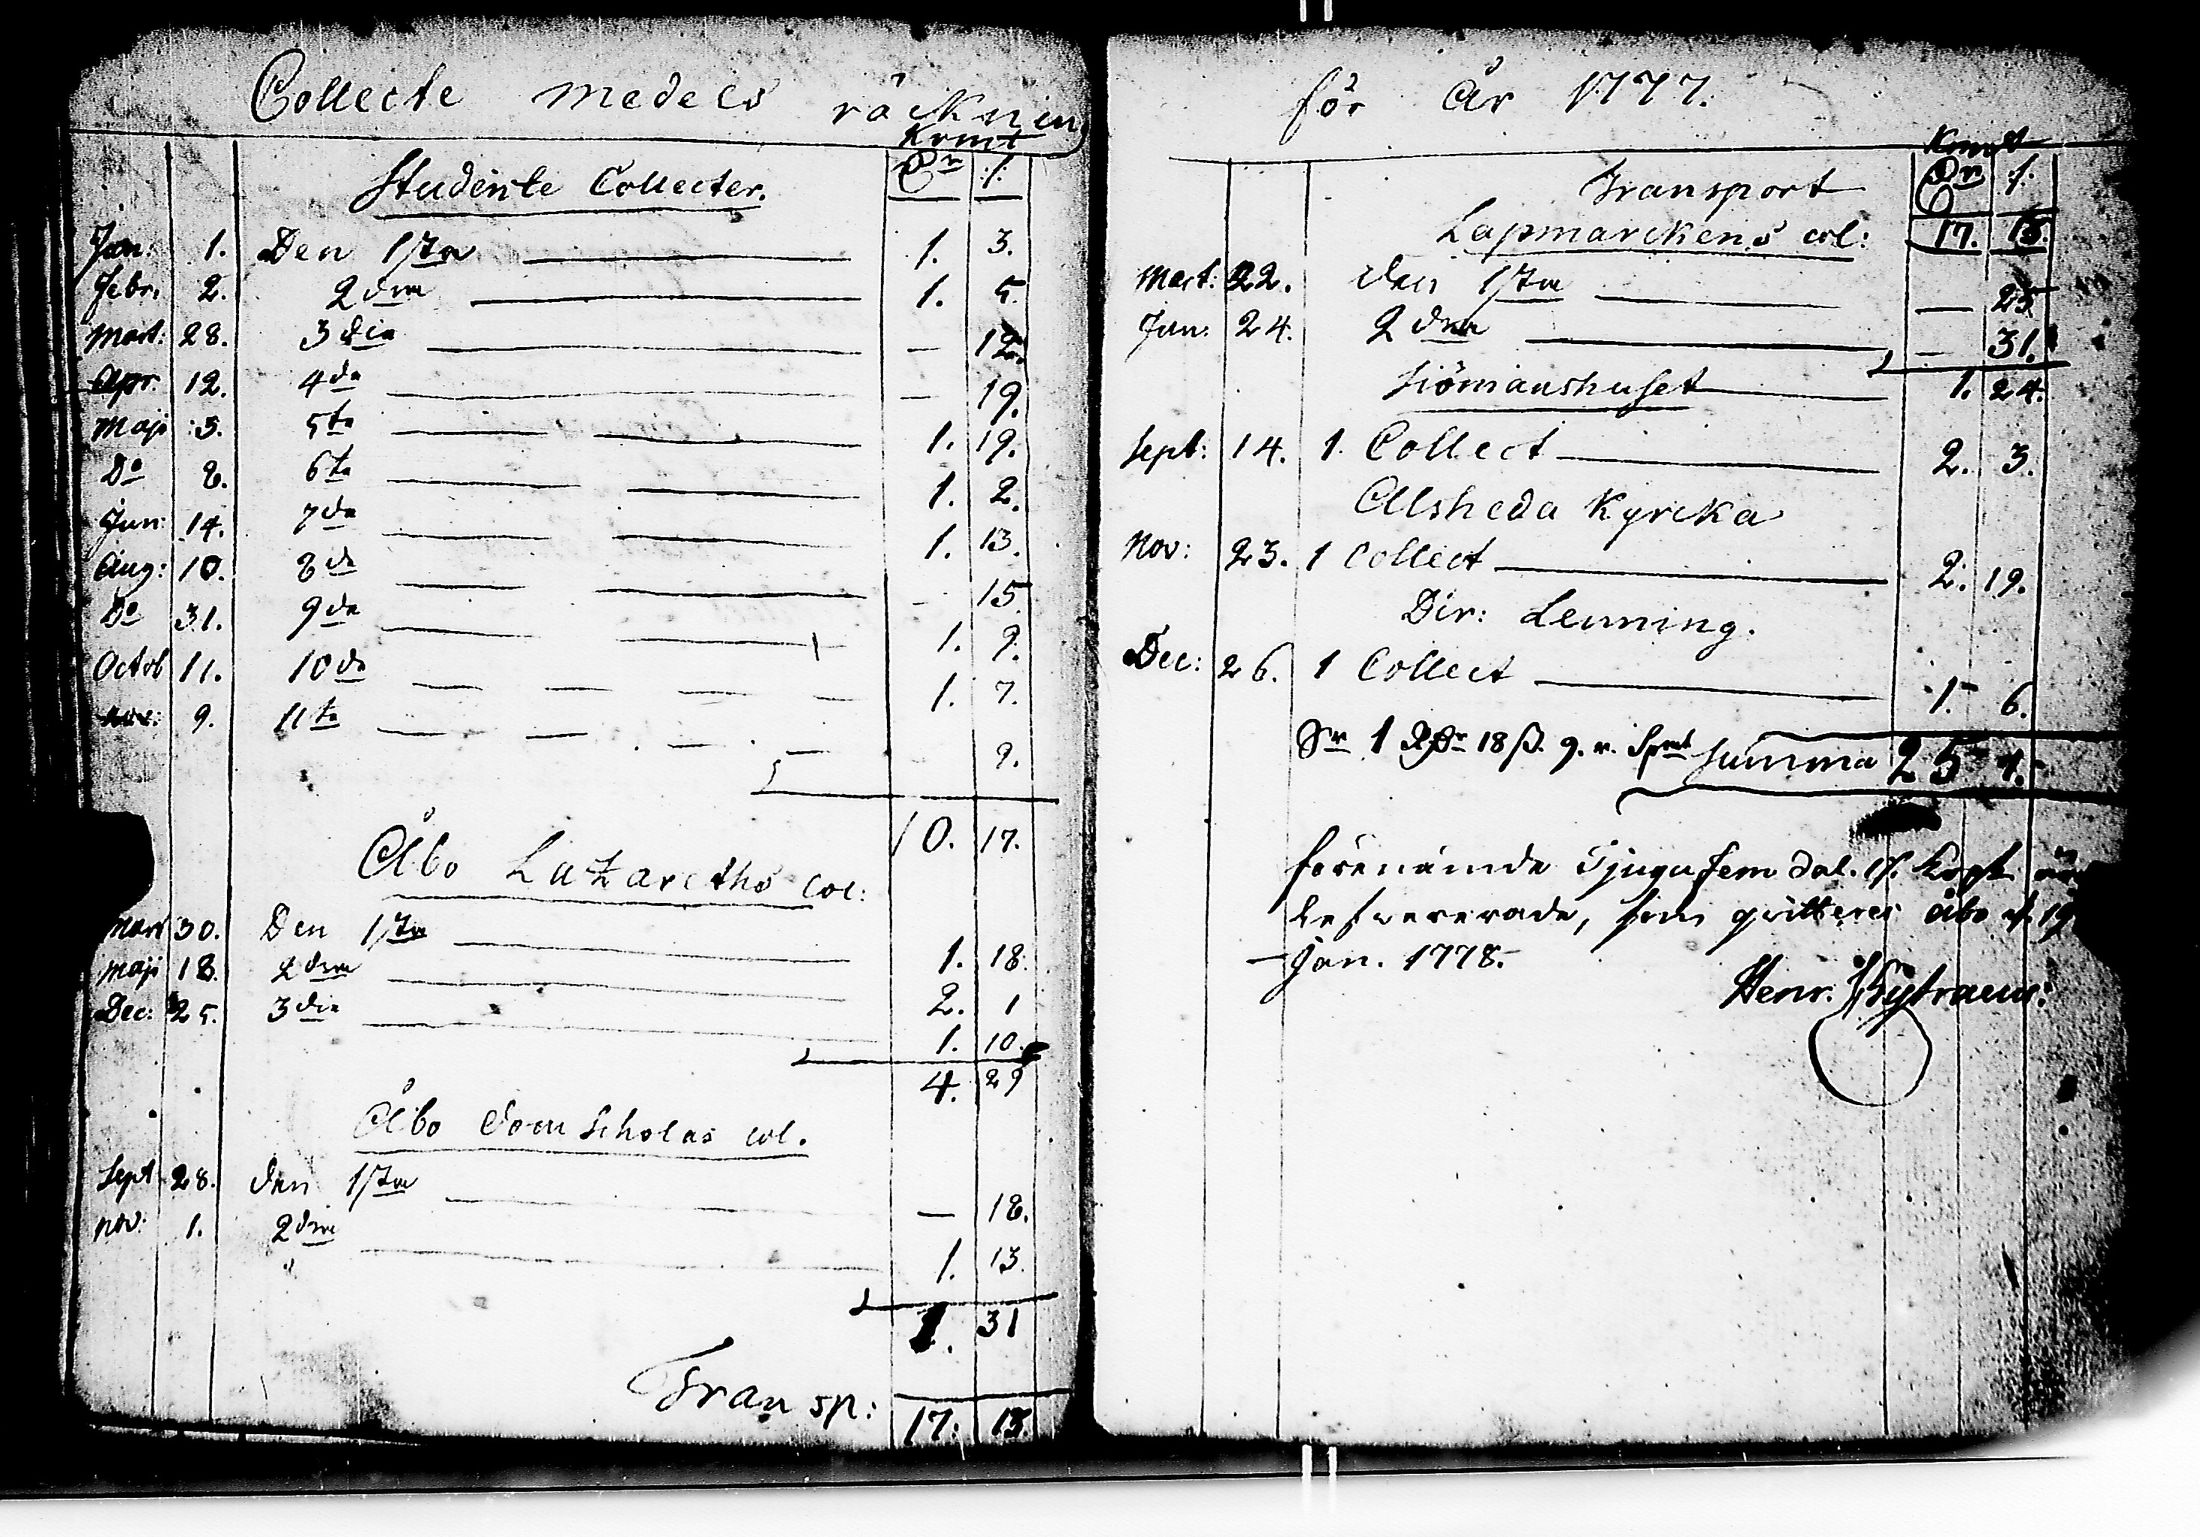 Collecte medels räcknin
Krmt
Dr /.
Studente Collecter.
Jan: 1. Den 1sta 1. 3.
Febr. 2. 2dra 1. 5.
Mart: 28. 3die — 12.
Apr. 12. 4de — 19.
Maji 3. 5te 1. 19.
Do 8. 6te 1. 2.
Jun: 14. 7de 1. 13.
Aug: 10. 8de — 15.
Do 31. 9de 1. 9.
Octob 11. 10de 1. 7.
Nov: 9. 11te — 9.
10. 17.
Åbo Lazareths col:
Mart 30. Den 1sta 1. 18.
Maji 18. 2dra 2. 1
Dec: 25. 3die 1. 10.
4. 29
Åbo Domscholas col.
Sept 28. den 1sta — 18.
Nov: 1. 2dra 1. 13.
31
Transp: 17. 13.
för År 1777.
Krmt
Dr /.
Transport
Lapmarckens col: 17. 13.
Mart: 22. den 1sta — 25.
Jun: 24. 2dra — 31.
Siömanshuset 1. 24.
Sept: 14. 1. Collect 2. 3.
Alsheda Kyrcka
Nov: 23. 1 Collect 2. 19.
Dir: Lenning.
Dec: 26. 1 Collect 1. 6.
Sr 1 Rdr 18 ß. 9. r. Spmt Summa 25 1.
förenämde Tjugufem dal. 1/. kopt
lefwererade, som qvitteres Åbo d 19
Jan. 1778.
Henr.